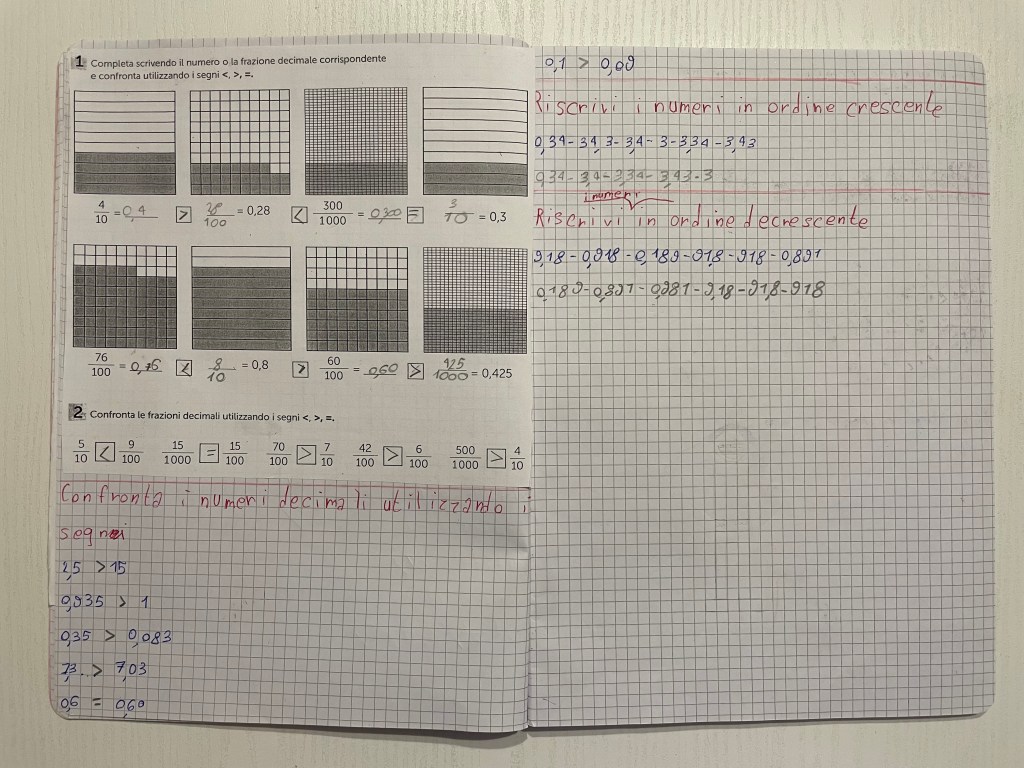 1 Completa scrivendo il numero o la frazione decimale corrispondente
e confronta utilizzando i segni <, >, =.
4/10 = 0,4 > 28/100 = 0,28 < 300/1000 = 0,300 = 3/10 = 0,3
76/100 = 0,76 < 8/10 = 0,8 > 60/100 = 0,60 > 425/1000 = 0,425
2 Confronta le frazioni decimali utilizzando i segni <, >, =.
5/10 < 9/100 15/1000 = 15/100 70/100 > 7/10 42/100 > 6/100 500/1000 > 4/10
Confronta i numeri decimali utilizzando i
segni
2,5 > 15
0,935 > 1
0,35 > 0,083
7,3 > 7,03
0,6 = 0,60
0,1 > 0,09
Riscrivi i numeri in ordine crescente
0,34 - 34,3 - 3,4 - 3 - 3,34 - 3,43
0,34 - 3,4 - 3,34 - 3,43 - 3
i numeri
Riscrivi in ordine decrescente
9,18 - 0,918 - 0,189 - 91,8 - 918 - 0,891
0,189 - 0,891 - 0,981 - 9,18 - 91,8 - 918